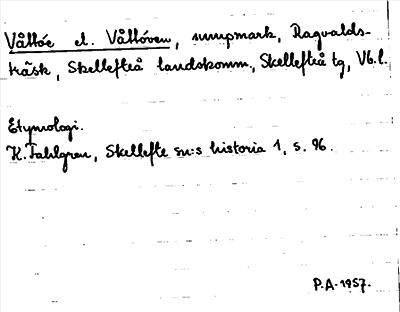 Våttóe el. Våttóven, sumpmark, Ragvalds-
träsk, Skellefteå landskomm., Skellefteå tg, Vb. l.
Etymologi.
K. Fahlgren, Skellefte sn:s historia 1, s. 96.
P.A. 1957.